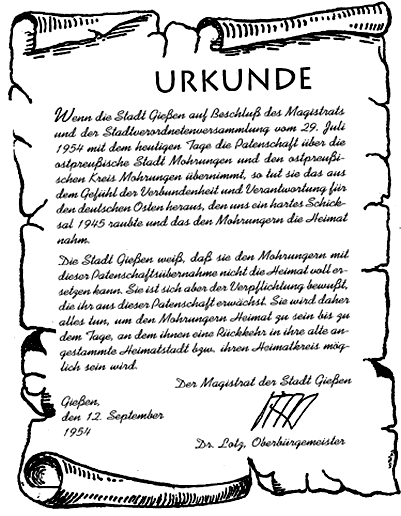 URKUNDE
Wenn die Stadt Gießen auf Beschluß des Magistrats
und der Stadtverordnetenversammlung vom 29. Juli
1954 mit dem heutigen Tage die Patenschaft über die
ostpreußische Stadt Mohrungen und den ostpreußi-
schen Kreis Mohrungen übernimmt, so tut sie das aus
dem Gefühl der Verbundenheit und Verantwortung für
den deutschen Osten heraus, den uns ein hartes Schick-
sal 1945 raubte und das den Mohrungern die Heimat
nahm.
Die Stadt Gießen weiß, daß sie den Mohrungern mit
dieser Patenschaftsübernahme nicht die Heimat voll er-
setzen kann. Sie ist sich aber der Verpflichtung bewußt,
die ihr aus dieser Patenschaft erwächst. Sie wird daher
alles tun, um den Mohrungern Heimat zu sein bis zu
dem Tage, an dem ihnen eine Rückkehr in ihre alte an-
gestammte Heimatstadt bzw. ihren Heimatkreis mög-
lich sein wird.
Der Magistrat der Stadt Gießen
Gießen,
den 12. September
1954
Dr. Lotz, Oberbürgermeister